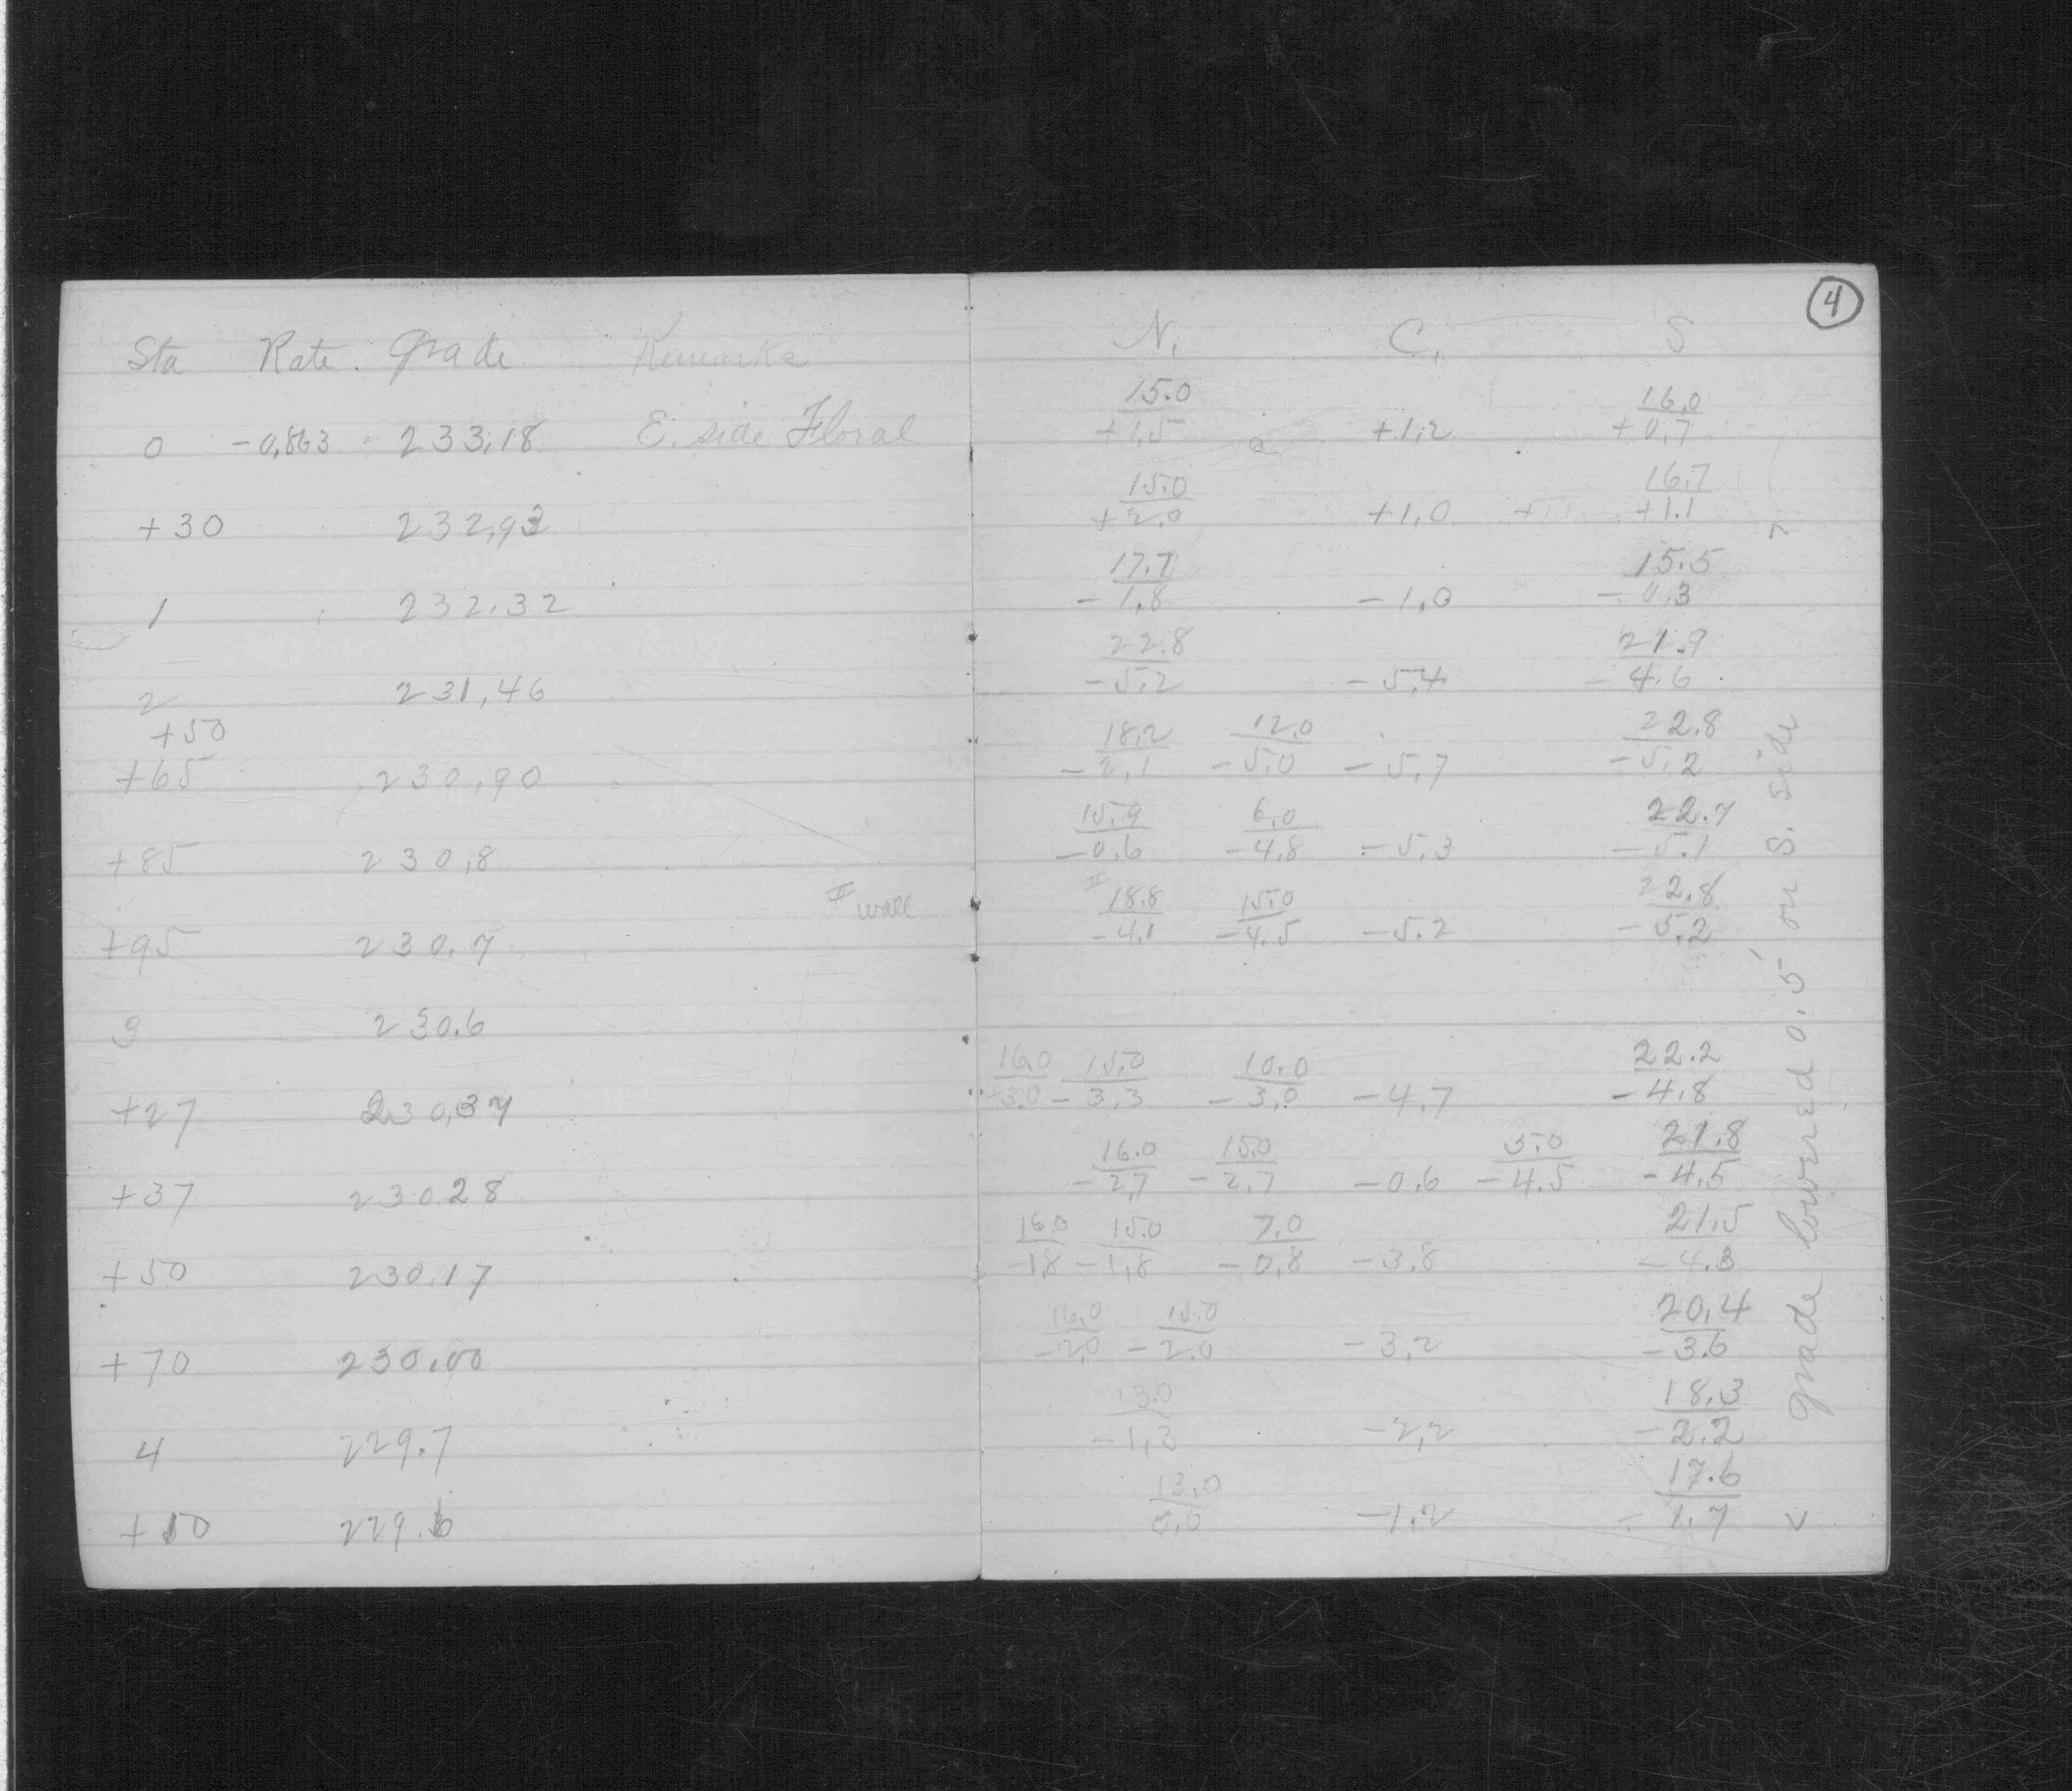 4
Sta Rate Grade Remarks N. C. S
15.0 16.0
0 -0.863 233.18 E. side Floral +1.5 +1.2 +0.7
15.0 16.7
+30 232.93 +2.0 +1.0 +1.1
17.7 15.5
1 232.32 -1.8 -1.0 -0.3
22.8 21.9
2 231.46 -5.2 -5.4 -4.6
+50 18.2 12.0 22.8
+65 230.90 -2.1 -5.0 -5.7 -5.2
15.9 6.0 22.7
+85 230.8 -0.6 -4.8 -5.3 -5.1
II wall II 18.8 15.0 22.8
+95 230.7 -4.1 -4.5 -5.2 -5.2
3 230.6
16.0 15.0 10.0 22.2
+27 230.37 -3.3 -3.0 -4.7 -4.8
16.0 15.0 5.0 21.8
+37 230.28 -2.7 -2.7 -0.6 -4.5 -4.5
16.0 15.0 7.0 21.5
+50 230.17 -1.8 -1.8 -0.8 -3.8 -4.3
16.0 15.0 20.4
+70 230.00 -2.0 -2.0 -3.2 -3.6
13.0 18.3
4 229.7 -1.3 -2.2 -2.2
13.0 17.6
+10 229.6 0.0 -1.2 -1.7
< grade lowered 0.5' on S. side >